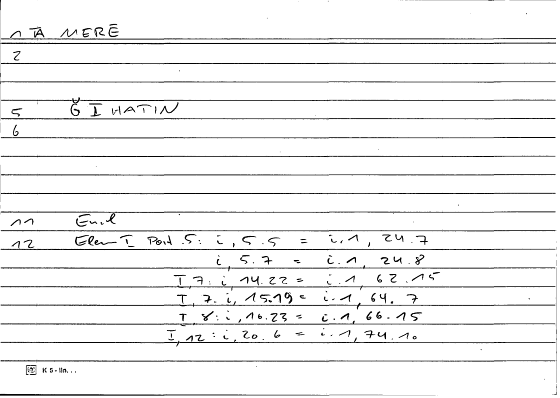 1 TĀ MERĒ
2
5 Ğ I HATIN
6
11 End
12 Elam I Port. 5: i, 5.5 = i.1, 24.7
i, 5.7 = i.1, 24.8
I, 7: i, 14.22 = i.1, 62.15
I, 7: i, 15.19 = i.1, 64.7
I, 8: i, 16.23 = i.1, 66.15
I, 12: i, 20.6 = i.1, 74.10
K 5 - lin...